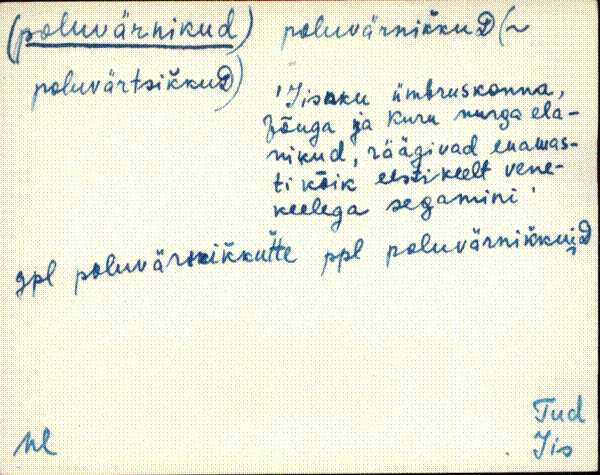 (poluvärnikud) poluvärnik̆kuD (~
poluvärtsik̆kuD)
'Iisaku ümbruskonna,
Jõuga ja Kuru nurga ela-
nikud, räägivad enamas-
ti kõik eesti keelt vene-
keelega segamini'
gpl poluvärnik̆kŭtte ppl poluvärnik̆kuiD
Tud
Iis